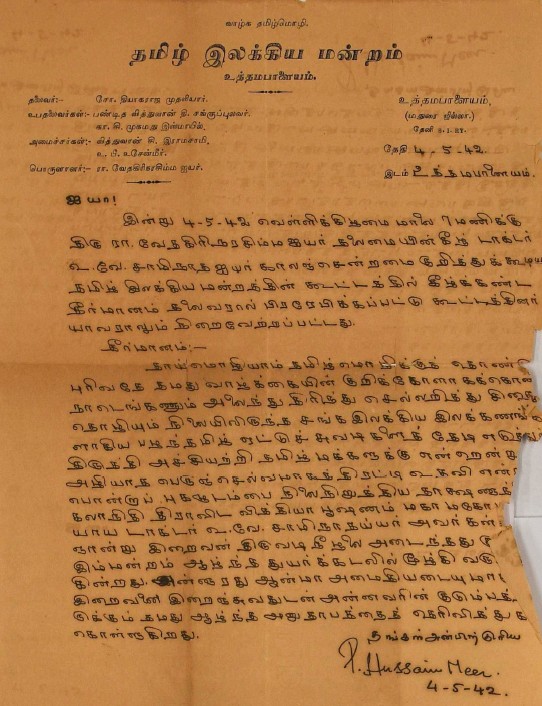 வாழ்க தமிழ்மொழி.
தமிழ் இலக்கிய மன்றம்
உத்தமபாளையம்.
தலைவர்:- சோ. தியாகராஜ முதலியார்.
உபதலைவர்கள்:- பண்டித வித்துவான் நி. சங்குப்புலவர்
கா. கி. முகமது இஸ்மாயில்,
அமைச்சர்கள்:- வித்துவான் கி. இராமசாமி,
உ. பி. உசேன்மீர்.
பொருளாளர்:- ரா. வேதகிரிநரசிம்ம ஐயர்.
உத்தமபாளையம்,
(மதுரை ஜில்லா.)
தேனி S. I. RY.
தேதி 4-5-42.
இடம் உத்தமபாளையம்.
ஐயா!
இன்று 4-5-42 வெள்ளிக்கிழமை மாலை 7 மணிக்கு
திரு ரா. வேதகிரிநரசிம்ம ஐயர் தலைமையின்கீழ் டாக்டர்
உ. வே. சாமிநாத ஐயர் காலஞ்சென்றமை குறித்துக் கூடிய
தமிழ் இலக்கிய மன்றத்தின் கூட்டத்தில் கீழ்க்கண்ட
தீர்மானம் தலைவரால் பிரரேபிக்கப்பட்டு கூட்டத்தினர்
யாவராலும் நிறைவேற்றப்பட்டது.
தீர்மானம்:-
தாய்மொழியாம் தமிழ்மொழிக்குத் தொண்
புரிவதே தமது வாழ்க்கையின் குறிக்கோளாகக்கொண்
நாடெங்கணும் அலைந்து திரிந்து செல்லரித்து
தொழியும் நிலையிலிருந்த சங்க இலக்கிய இலக்கணங்
ளாகிய பழந்தமிழ் ஏட்டுச் சுவடிகளைத் தேடி எடுத்து
திருத்தி அச்சியற்றி தமிழ் மக்களுக்கு என்றென்று
அழியாத பெருஞ்செல்வமாகத் திரட்டி உதவி என்
பொன்றாப் புகழுடம்பை நிலைநிறுத்திய தாக்ஷிணாத்
கலாநிதி திராவிட வித்தியா பூஷணம் மகாமகோ
யாய டாக்டர் உ. வே. சாமிநாதய்யர் அவர்கள்
ஞான்று இறைவன் திருவடி நீழலை அடைந்தது
இம்மன்றம் ஆழ்ந்த துயர்க்கடலில் மூழ்கி வரு
கின்றது. அன்னாரது ஆன்மா அமைதியடையுமா
இறைவனை இறைஞ்சுவதுடன் அன்னவரின் குடும்பத்
டுக்கும் தமது ஆழ்ந்த அனுதாபத்தைத் தெரிவித்துக்
கொள்ளுகிறது.
தங்கள் அன்பிற்குரிய
P. Hussain Meer.
4-5-42.